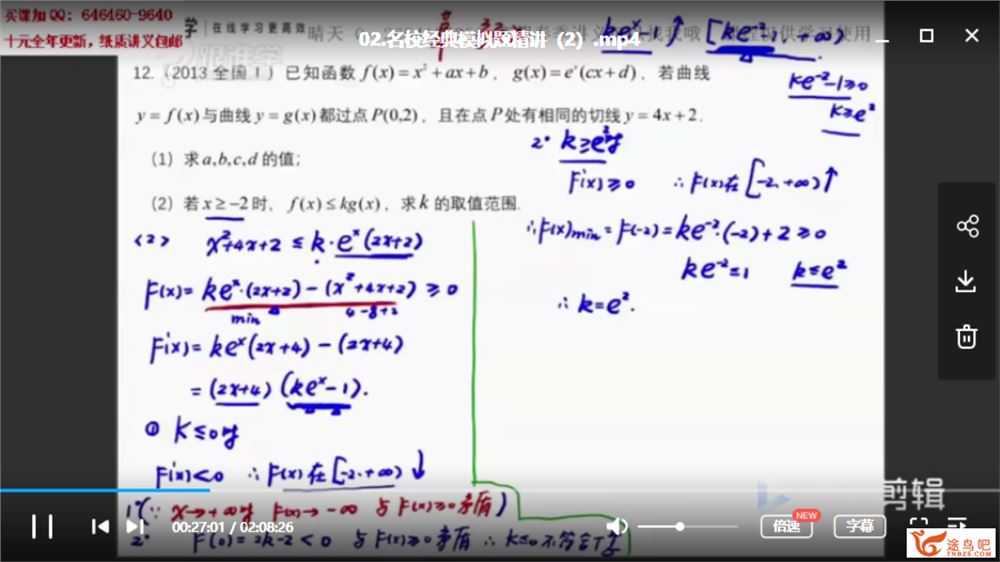 买课加QQ：646460-9640
十元全年更新，纸质讲义包邮
在线学习更高效
晴天
02.名校经典模拟题精讲（2）.mp4
学习使用
ke^x-1↑ [ke^{-2}-1, +∞)
ke^{-2}-1≥0
k≥e^2
12.（2013 全国 I）已知函数 f(x)=x²+ax+b，g(x)=e^x(cx+d)，若曲线
y=f(x)与曲线 y=g(x)都过点 P(0,2)，且在点 P 处有相同的切线 y=4x+2.
（1）求a,b,c,d 的值；
（2）若x≥-2时，f(x)≤kg(x)，求k 的取值范围.
<2> x²+4x+2≤k·e^x(2x+2)
F(x)=ke^x·(2x+2)-(x²+4x+2)≥0
min 4-8+2
F'(x)=ke^x(2x+4)-(2x+4)
=(2x+4)(ke^x-1).
① k≤0时
F'(x)<0 ∴F(x)在[-2,+∞)↓
1°(∵x→+∞时 F(x)→-∞ 与F(x)≥0矛盾)
2° F(0)=2k-2<0 与F(x)≥0矛盾 ∴k≤0不符合
2° k≥e²时
F'(x)≥0 ∴F(x)在[-2,+∞)↑
∴F(x)min=F(-2)=ke^{-2}·(-2)+2≥0
ke^{-2}≤1 k≤e²
∴k=e².
剪辑
00:27:01 / 02:08:26
倍速
NEW
字幕
途鸟吧
TNBZS.COM